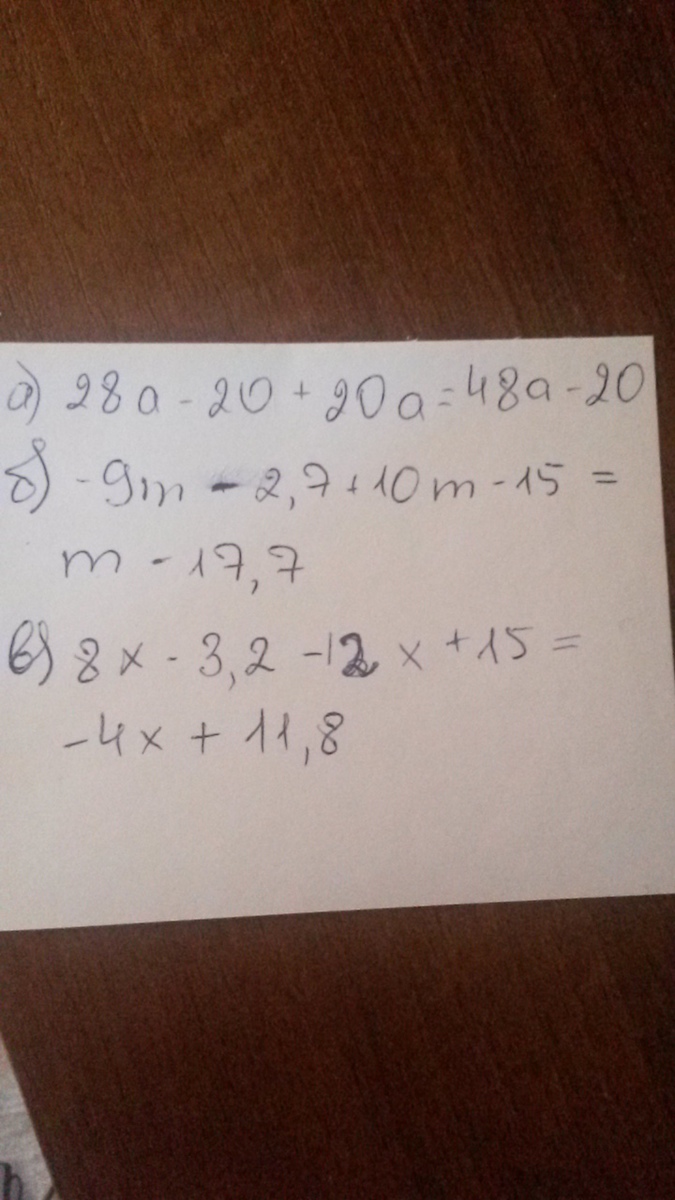 а) 28a - 20 + 20a = 48a - 20
б) -9m - 2,7 + 10m - 15 =
m - 17,7
в) 8x - 3,2 - 12x + 15 =
-4x + 11,8